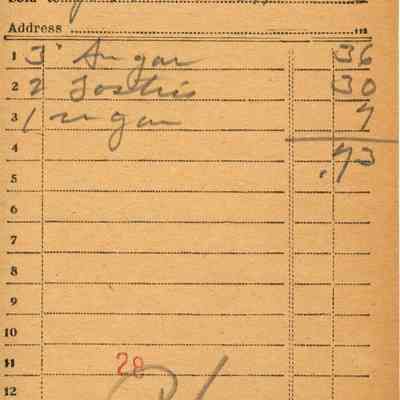 Sold to
Address
1 3 Sugar 36
2 2 Tosties 30
3 1 sugar 7
4 .73
5
6
7
8
9
10
11 28
12